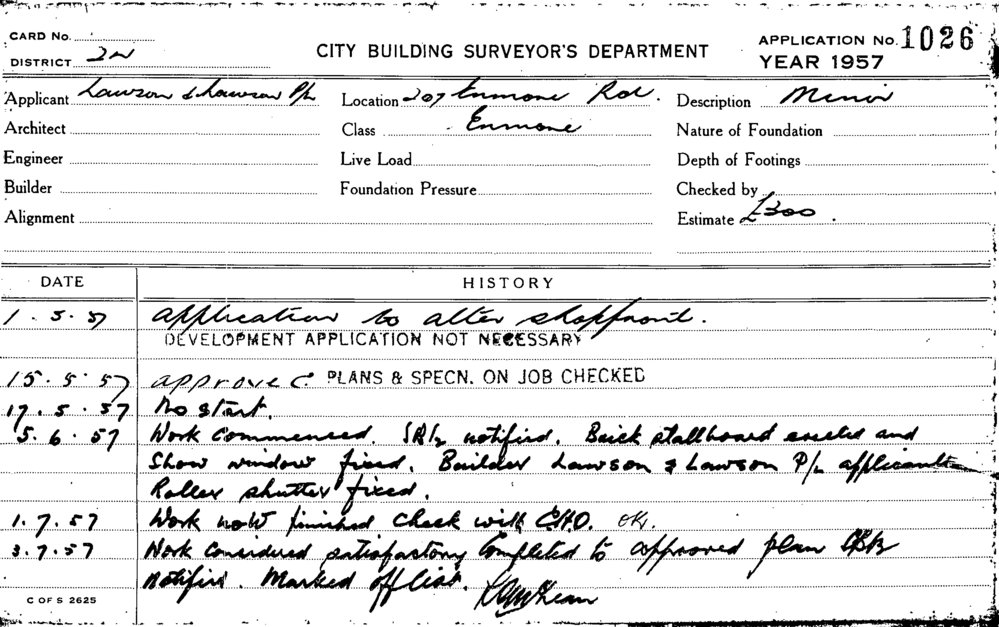 CARD No.
DISTRICT 2W
CITY BUILDING SURVEYOR'S DEPARTMENT
APPLICATION No. 1026
YEAR 1957
Applicant Lawson & Lawson P/L
Location 207 Enmore Rd.
Description Minor
Architect
Class Enmore
Nature of Foundation
Engineer
Live Load
Depth of Footings
Builder
Foundation Pressure
Checked by
Alignment
Estimate £300.
DATE
HISTORY
1.5.57 Application to alter shopfront.
DEVELOPMENT APPLICATION NOT NECESSARY
15.5.57 approve C. PLANS & SPECN. ON JOB CHECKED
17.5.57 No start.
5.6.57 Work commenced. notified. Brick stallboard erected and
Show window fixed. Builder Lawson & Lawson P/L applicants
Roller shutter fixed.
1.7.57 Work now finished check with C.H.O. OK.
3.7.57 Work considered satisfactory Completed to approved plan
notified. Marked off list.
C OF S 2625